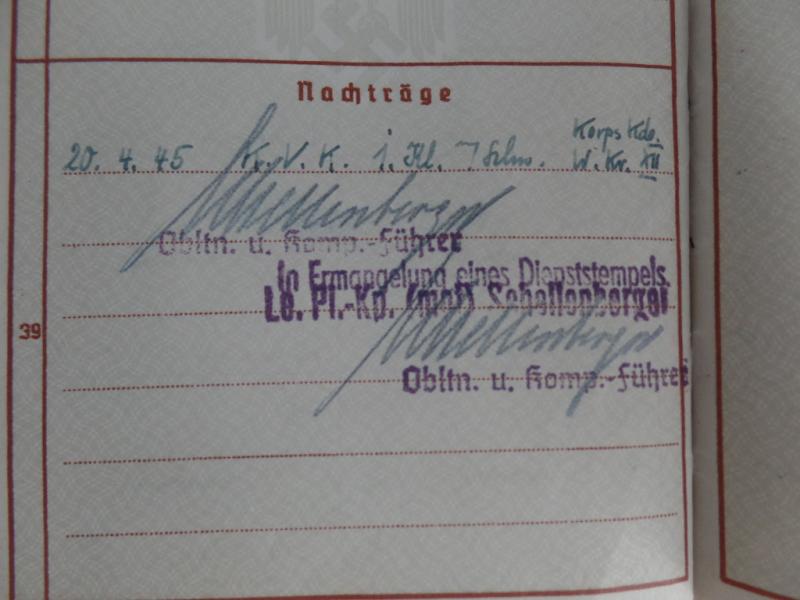 Nachträge
Korps Kdo.
20. 4. 45 Kr. V. K. I. Kl. m. Schw. W. Kr. XII
Schellenberger
Obltn. u. Komp.-Führer
In Ermangelung eines Dienststempels
Le. Pi.-Kp. (mot) Schellenberger
39
Schellenberger
Obltn. u. Komp.-Führer